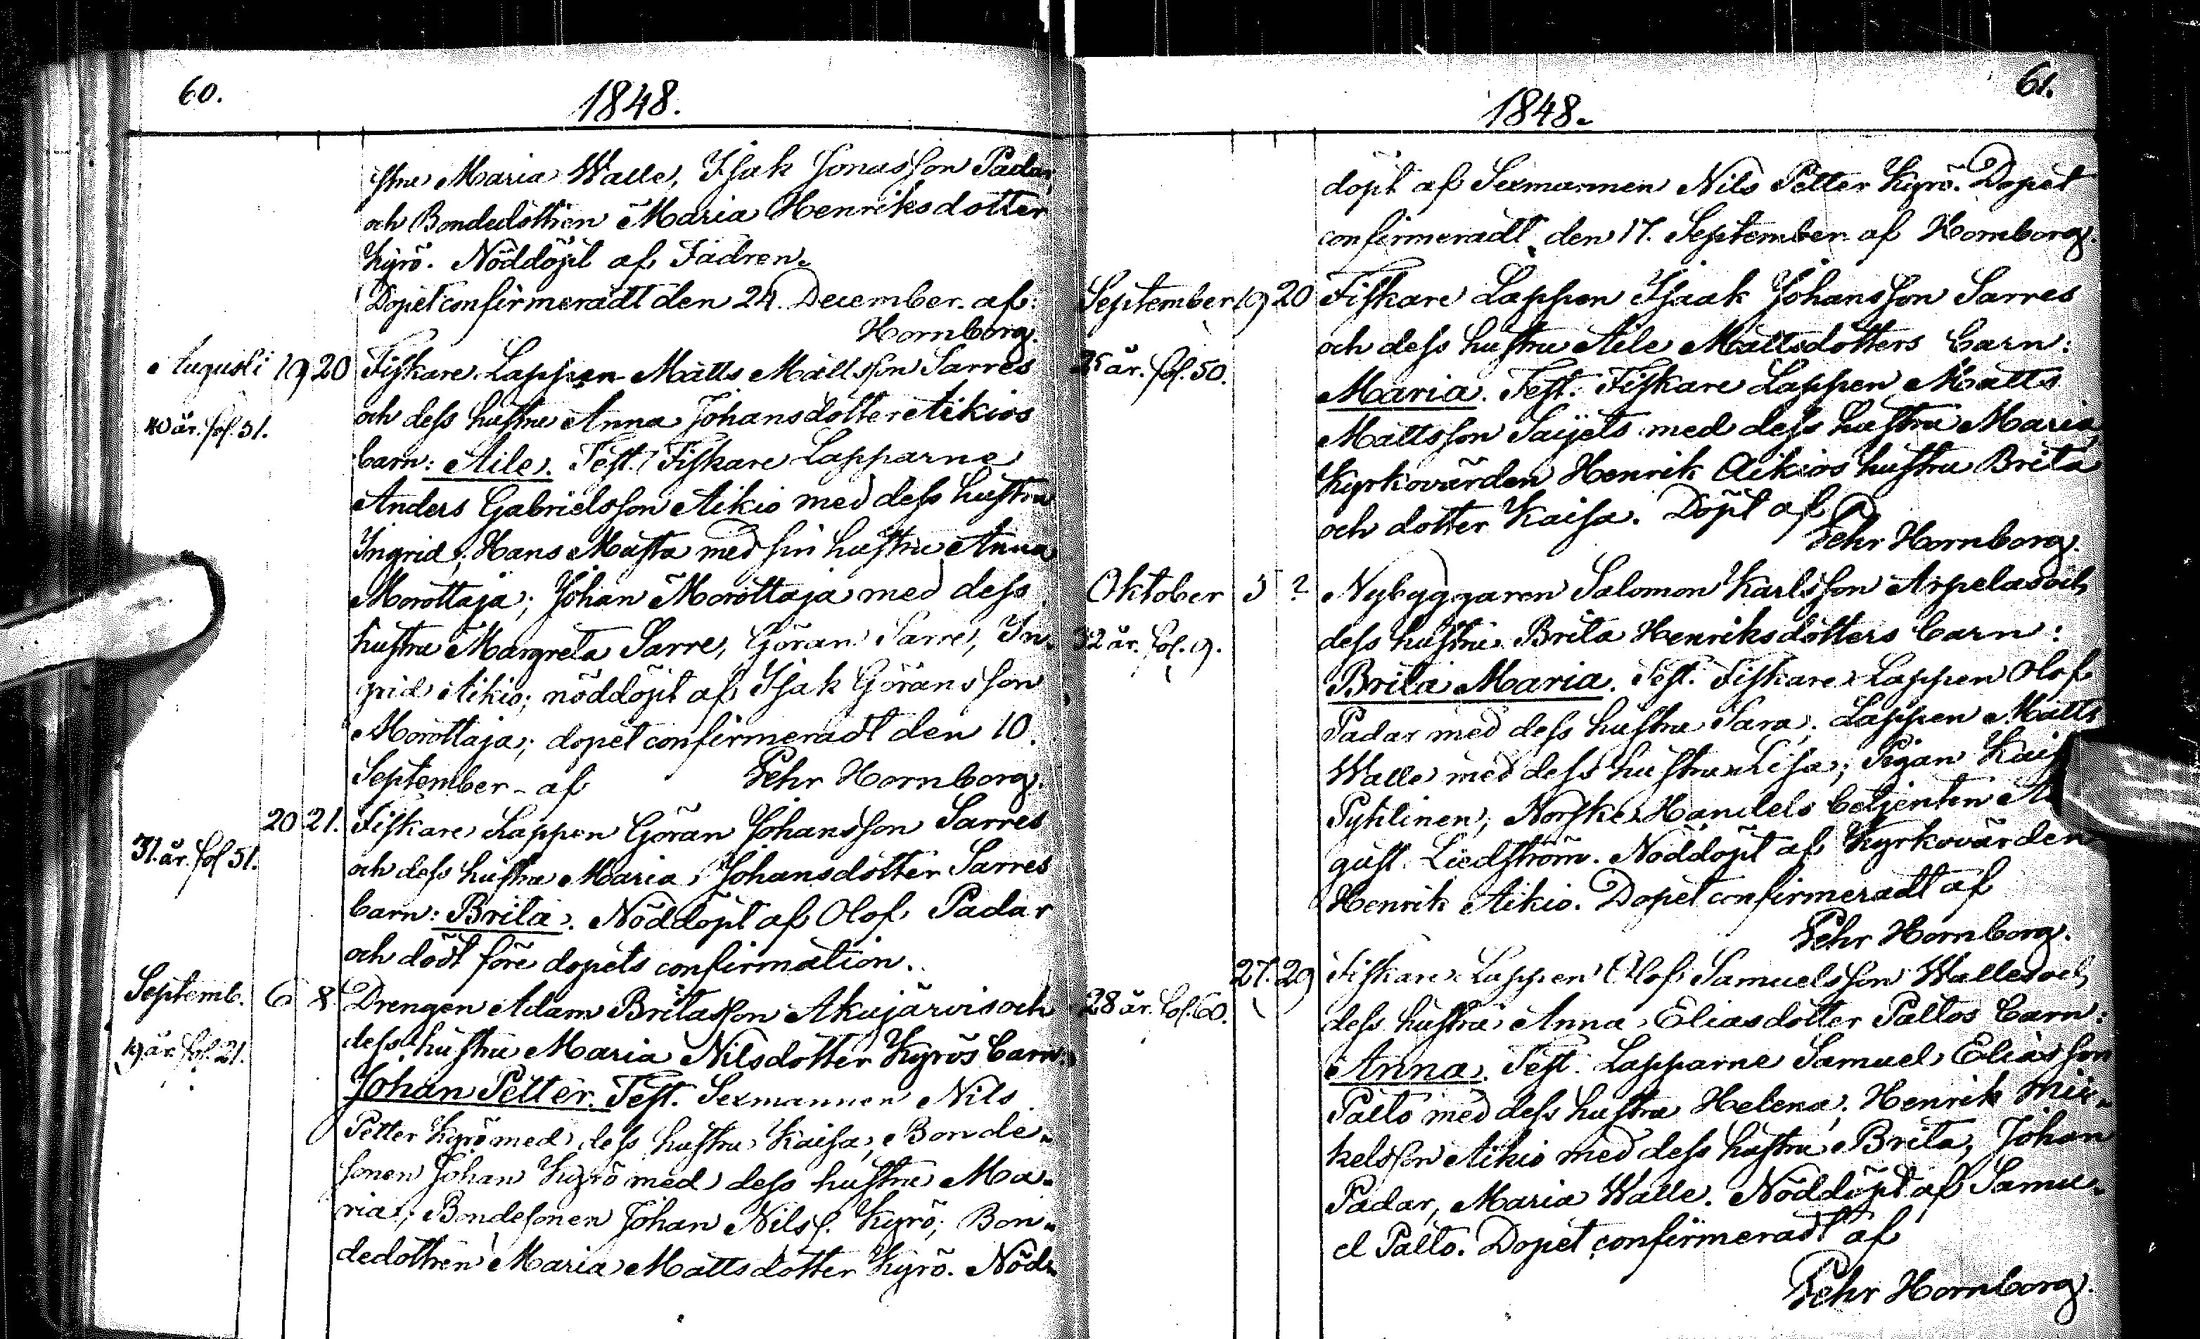 60.
1848.
stru Maria Walle, Isak Jonasson Padar,
och Bondedottren Maria Henriksdotter
Kyrö. Nöddöpt af Fadren.
Dopet confirmeradt den 24. December af:
Hornborg.
Augusti 19 20 Fiskare Lappen Matts Mattsson Sarres
och dess hustru Anna Johansdotter Aikios
40 år. fol. 51.
barn: Aile. Test. Fiskare Lapparne
Anders Gabrielsson Aikio med dess hustru
Ingrid; Hans Musta med sin hustru Anna
Morottaja; Johan Morottaja med dess
hustru Margreta Sarre, Göran Sarre, In-
grid Aikio; nöddöpt af Isak Göransson
Morottaja; dopet confirmeradt den 10.
September af Pehr Hornborg.
20 21. Fiskare Lappen Göran Johansson Sarres
31. år. fol 51. och dess hustru Maria Johansdotter Sarres
barn: Brita. Nöddöpt af Olof Padar
och dödt före dopets confirmation.
Septemb. 6 8 Drengen Adam Britasson Akujärvis och
19 år. fol. 21. dess hustru Maria Nilsdotter Kyrös barn:
Johan Petter. Test. Sexmannen Nils
Petter Kyrö med dess hustru Kaisa, Bonde-
sonen Johan Kyrö med dess hustru Ma-
ria; Bondesonen Johan Nilss. Kyrö; Bon-
dedottren Maria Mattsdotter Kyrö. Nöd-
61.
1848.
döpt af Sexmannen Nils Petter Kyrö. Dopet
confirmeradt den 17. September af Hornborg.
September 19 20 Fiskare Lappen Isaak Johansson Sarres
och dess hustru Aile Mattsdotters barn:
år. fol. 50.
Maria. Test. Fiskare Lappen Matts
Mattsson Saijets med dess hustru Maria,
Kyrkovärden Henrik Aikios hustru Brita
och dotter Kaisa. Döpt af
Pehr Hornborg.
Oktober 5 ? Nybyggaren Salomon Karlsson Arpelas och
32 år. fol. 9. dess hustru Brita Henriksdotters barn:
Brita Maria. Test. Fiskare Lappen Olof
Padar med dess hustru Sara; Lappen Matts
Walle med dess hustru Lisa; Pigan Kais
Pyhlinen; Norske Handels betjenten
gust Liedström. Nöddöpt af Kyrkovärden
Henrik Aikio. Dopet confirmeradt af
Pehr Hornborg.
27. 29 Fiskare Lappen Olof Samuelsson Walles och
28 år. fol. 60. dess hustru Anna Eliasdotter Paltos barn:
Anna. Test. Lapparne Samuel Eliasson
Palto med dess hustru Helena; Henrik Mic-
kelsson Aikio med dess hustru Brita, Johan
Padar, Maria Walle. Nöddöpt af Samu-
el Palto. Dopet confirmeradt af
Pehr Hornborg.